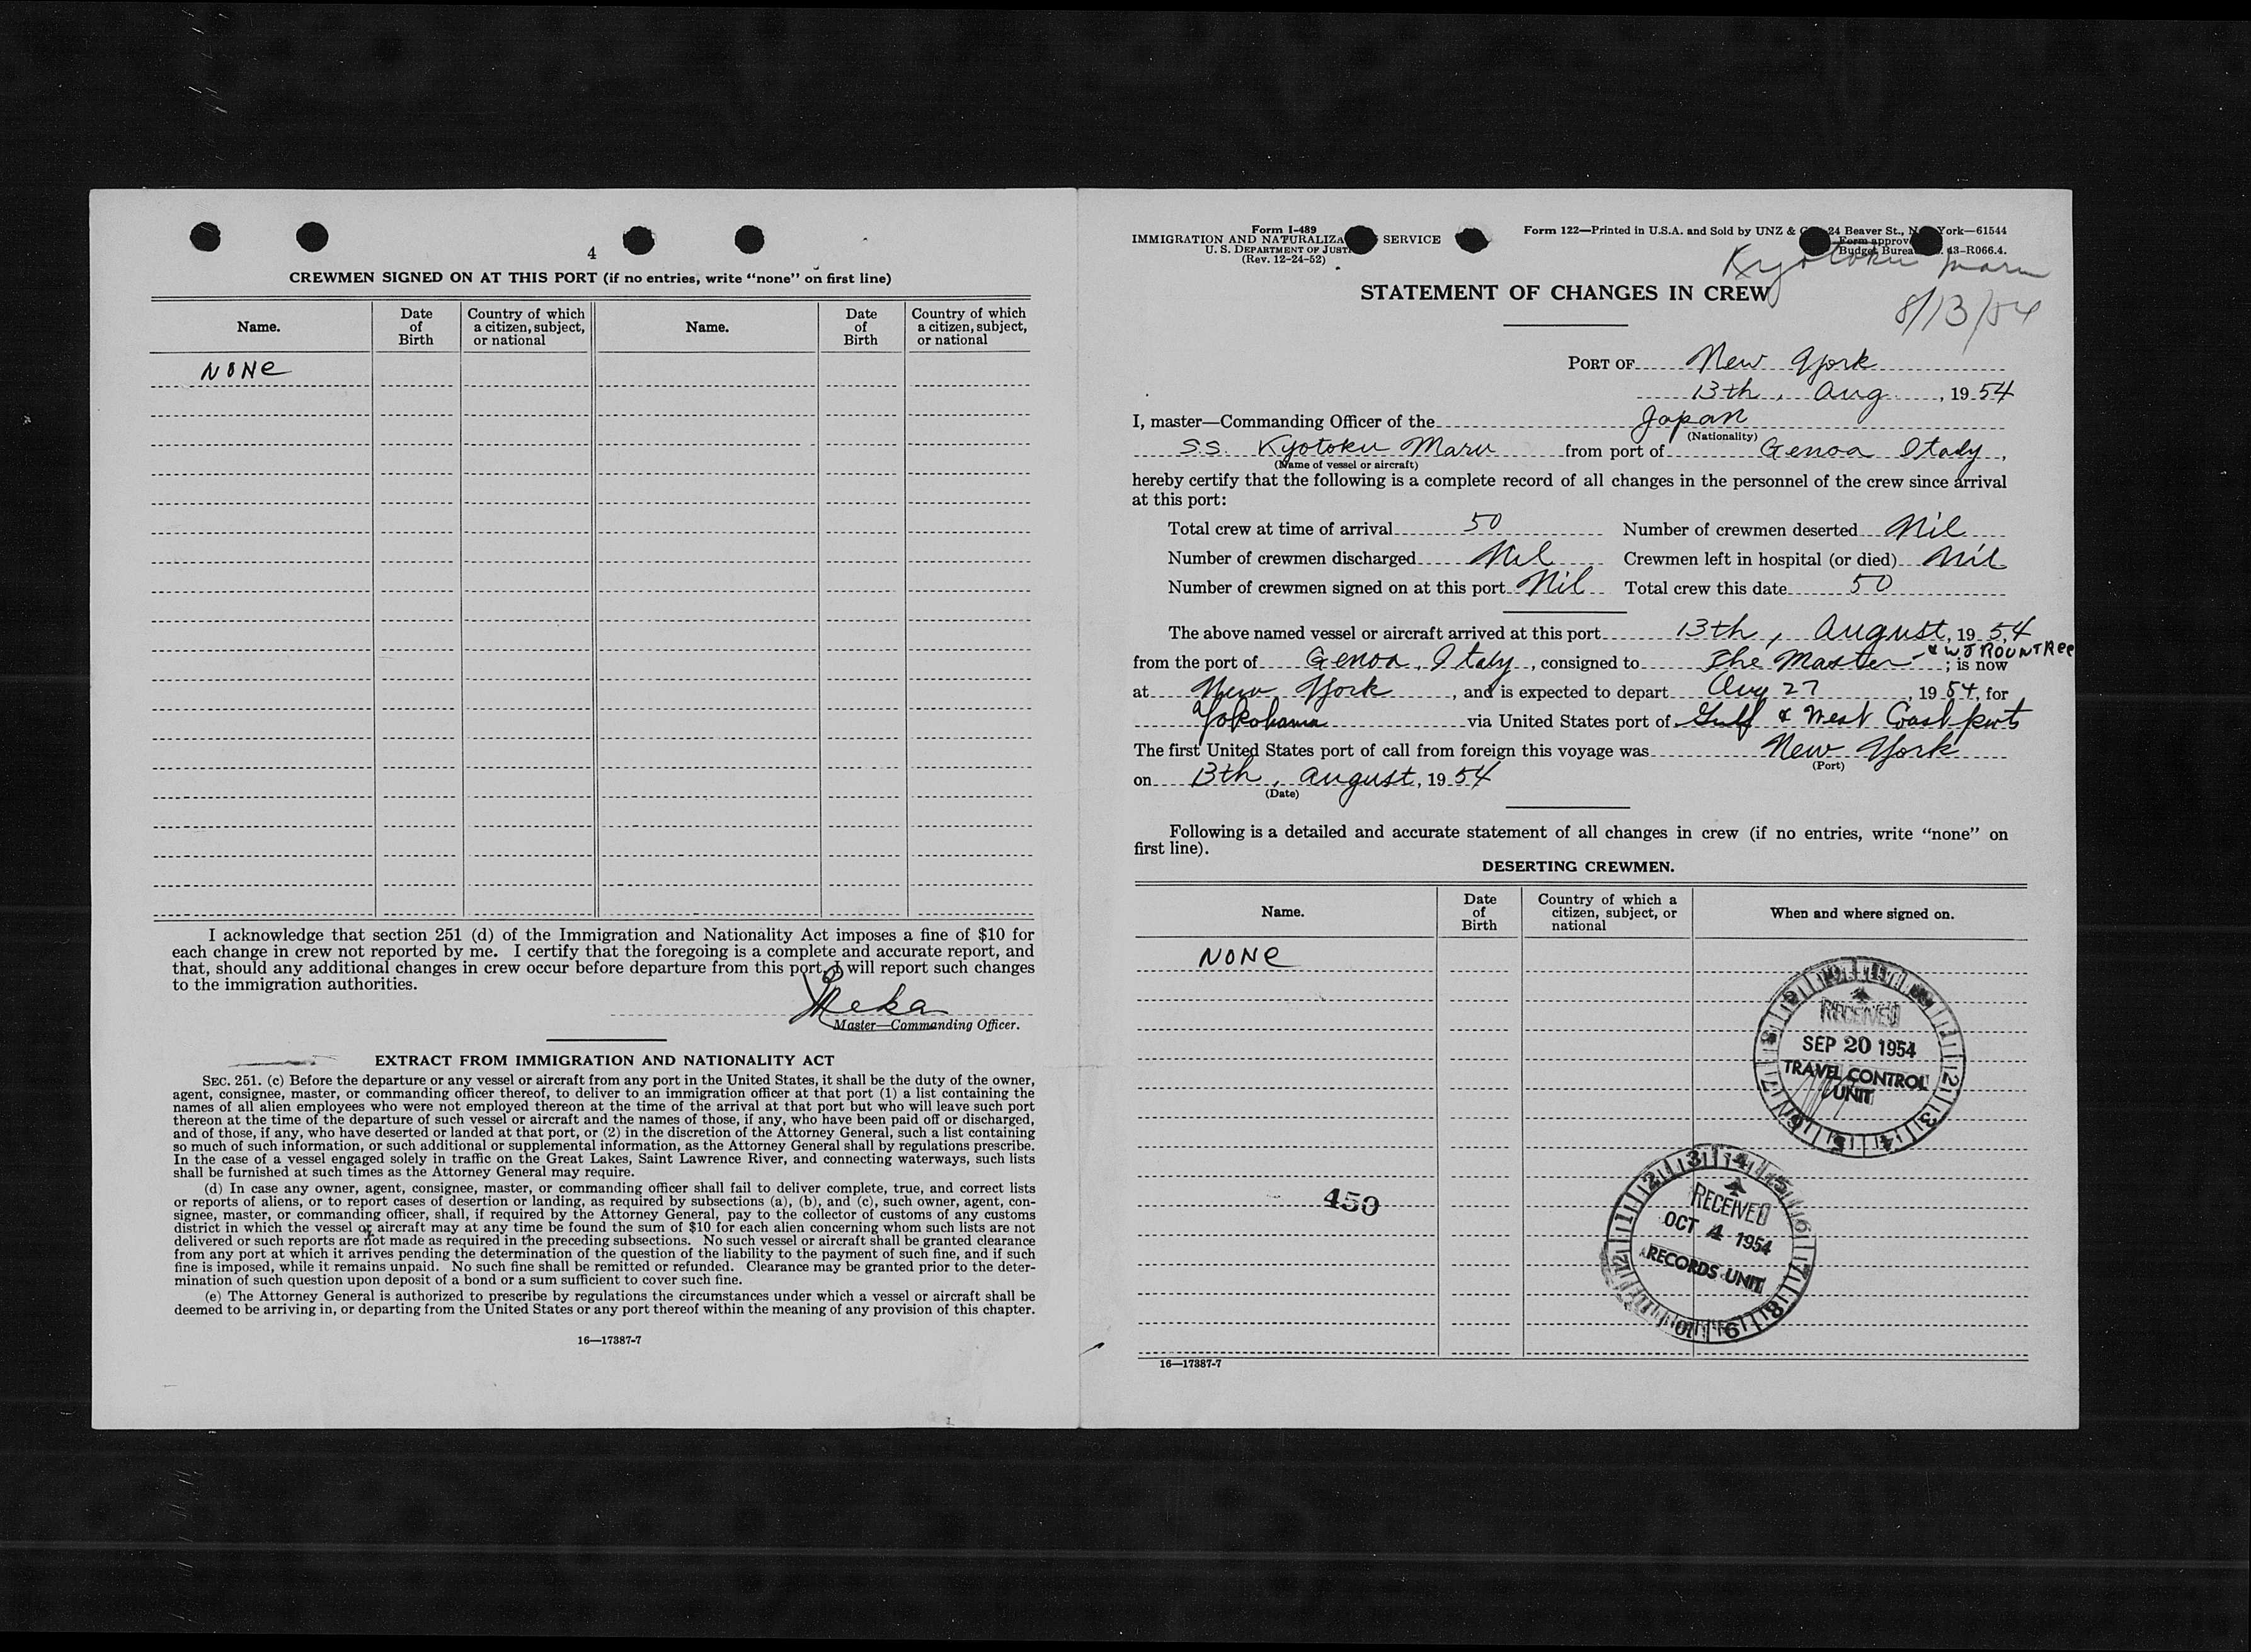 4
CREWMEN SIGNED ON AT THIS PORT (if no entries, write “none” on first line)
Name. Date of Birth Country of which a citizen, subject, or national Name. Date of Birth Country of which a citizen, subject, or national
NONE
I acknowledge that section 251 (d) of the Immigration and Nationality Act imposes a fine of $10 for
each change in crew not reported by me. I certify that the foregoing is a complete and accurate report, and
that, should any additional changes in crew occur before departure from this port, I will report such changes
to the immigration authorities.
Master—Commanding Officer.
EXTRACT FROM IMMIGRATION AND NATIONALITY ACT
SEC. 251. (c) Before the departure or any vessel or aircraft from any port in the United States, it shall be the duty of the owner,
agent, consignee, master, or commanding officer thereof, to deliver to an immigration officer at that port (1) a list containing the
names of all alien employees who were not employed thereon at the time of the arrival at that port but who will leave such port
thereon at the time of the departure of such vessel or aircraft and the names of those, if any, who have been paid off or discharged,
and of those, if any, who have deserted or landed at that port, or (2) in the discretion of the Attorney General, such a list containing
so much of such information, or such additional or supplemental information, as the Attorney General shall by regulations prescribe.
In the case of a vessel engaged solely in traffic on the Great Lakes, Saint Lawrence River, and connecting waterways, such lists
shall be furnished at such times as the Attorney General may require.
(d) In case any owner, agent, consignee, master, or commanding officer shall fail to deliver complete, true, and correct lists
or reports of aliens, or to report cases of desertion or landing, as required by subsections (a), (b), and (c), such owner, agent, con-
signee, master, or commanding officer, shall, if required by the Attorney General, pay to the collector of customs of any customs
district in which the vessel or aircraft may at any time be found the sum of $10 for each alien concerning whom such lists are not
delivered or such reports are not made as required in the preceding subsections. No such vessel or aircraft shall be granted clearance
from any port at which it arrives pending the determination of the question of the liability to the payment of such fine, and if such
fine is imposed, while it remains unpaid. No such fine shall be remitted or refunded. Clearance may be granted prior to the deter-
mination of such question upon deposit of a bond or a sum sufficient to cover such fine.
(e) The Attorney General is authorized to prescribe by regulations the circumstances under which a vessel or aircraft shall be
deemed to be arriving in, or departing from the United States or any port thereof within the meaning of any provision of this chapter.
16—17387-7
Form I-489
IMMIGRATION AND NATURALIZA SERVICE
U. S. DEPARTMENT OF JUST
(Rev. 12-24-52)
Form 122—Printed in U.S.A. and Sold by UNZ & C 24 Beaver St., N York—61544
Form approv
Budget Burea 43-R066.4.
Kyotoku Maru
8/13/54
STATEMENT OF CHANGES IN CREW
PORT OF New York
13th, Aug., 1954
I, master—Commanding Officer of the Japan
(Nationality)
S.S. Kyotoku Maru from port of Genoa Italy,
(Name of vessel or aircraft)
hereby certify that the following is a complete record of all changes in the personnel of the crew since arrival
at this port:
Total crew at time of arrival 50 Number of crewmen deserted Nil
Number of crewmen discharged Nil Crewmen left in hospital (or died) Nil
Number of crewmen signed on at this port Nil Total crew this date 50
The above named vessel or aircraft arrived at this port 13th, August, 1954
from the port of Genoa, Italy, consigned to The Master & WJ ROUNTREE; is now
at New York, and is expected to depart Aug 27, 1954, for
Yokohama via United States port of Gulf & West Coast ports
The first United States port of call from foreign this voyage was New York
(Port)
on 13th, August, 1954
(Date)
Following is a detailed and accurate statement of all changes in crew (if no entries, write “none” on
first line).
DESERTING CREWMEN.
Name. Date of Birth Country of which a citizen, subject, or national When and where signed on.
NONE
RECEIVED
SEP 20 1954
TRAVEL CONTROL
UNIT
450
RECEIVED
OCT 4 1954
RECORDS UNIT
16—17387-7